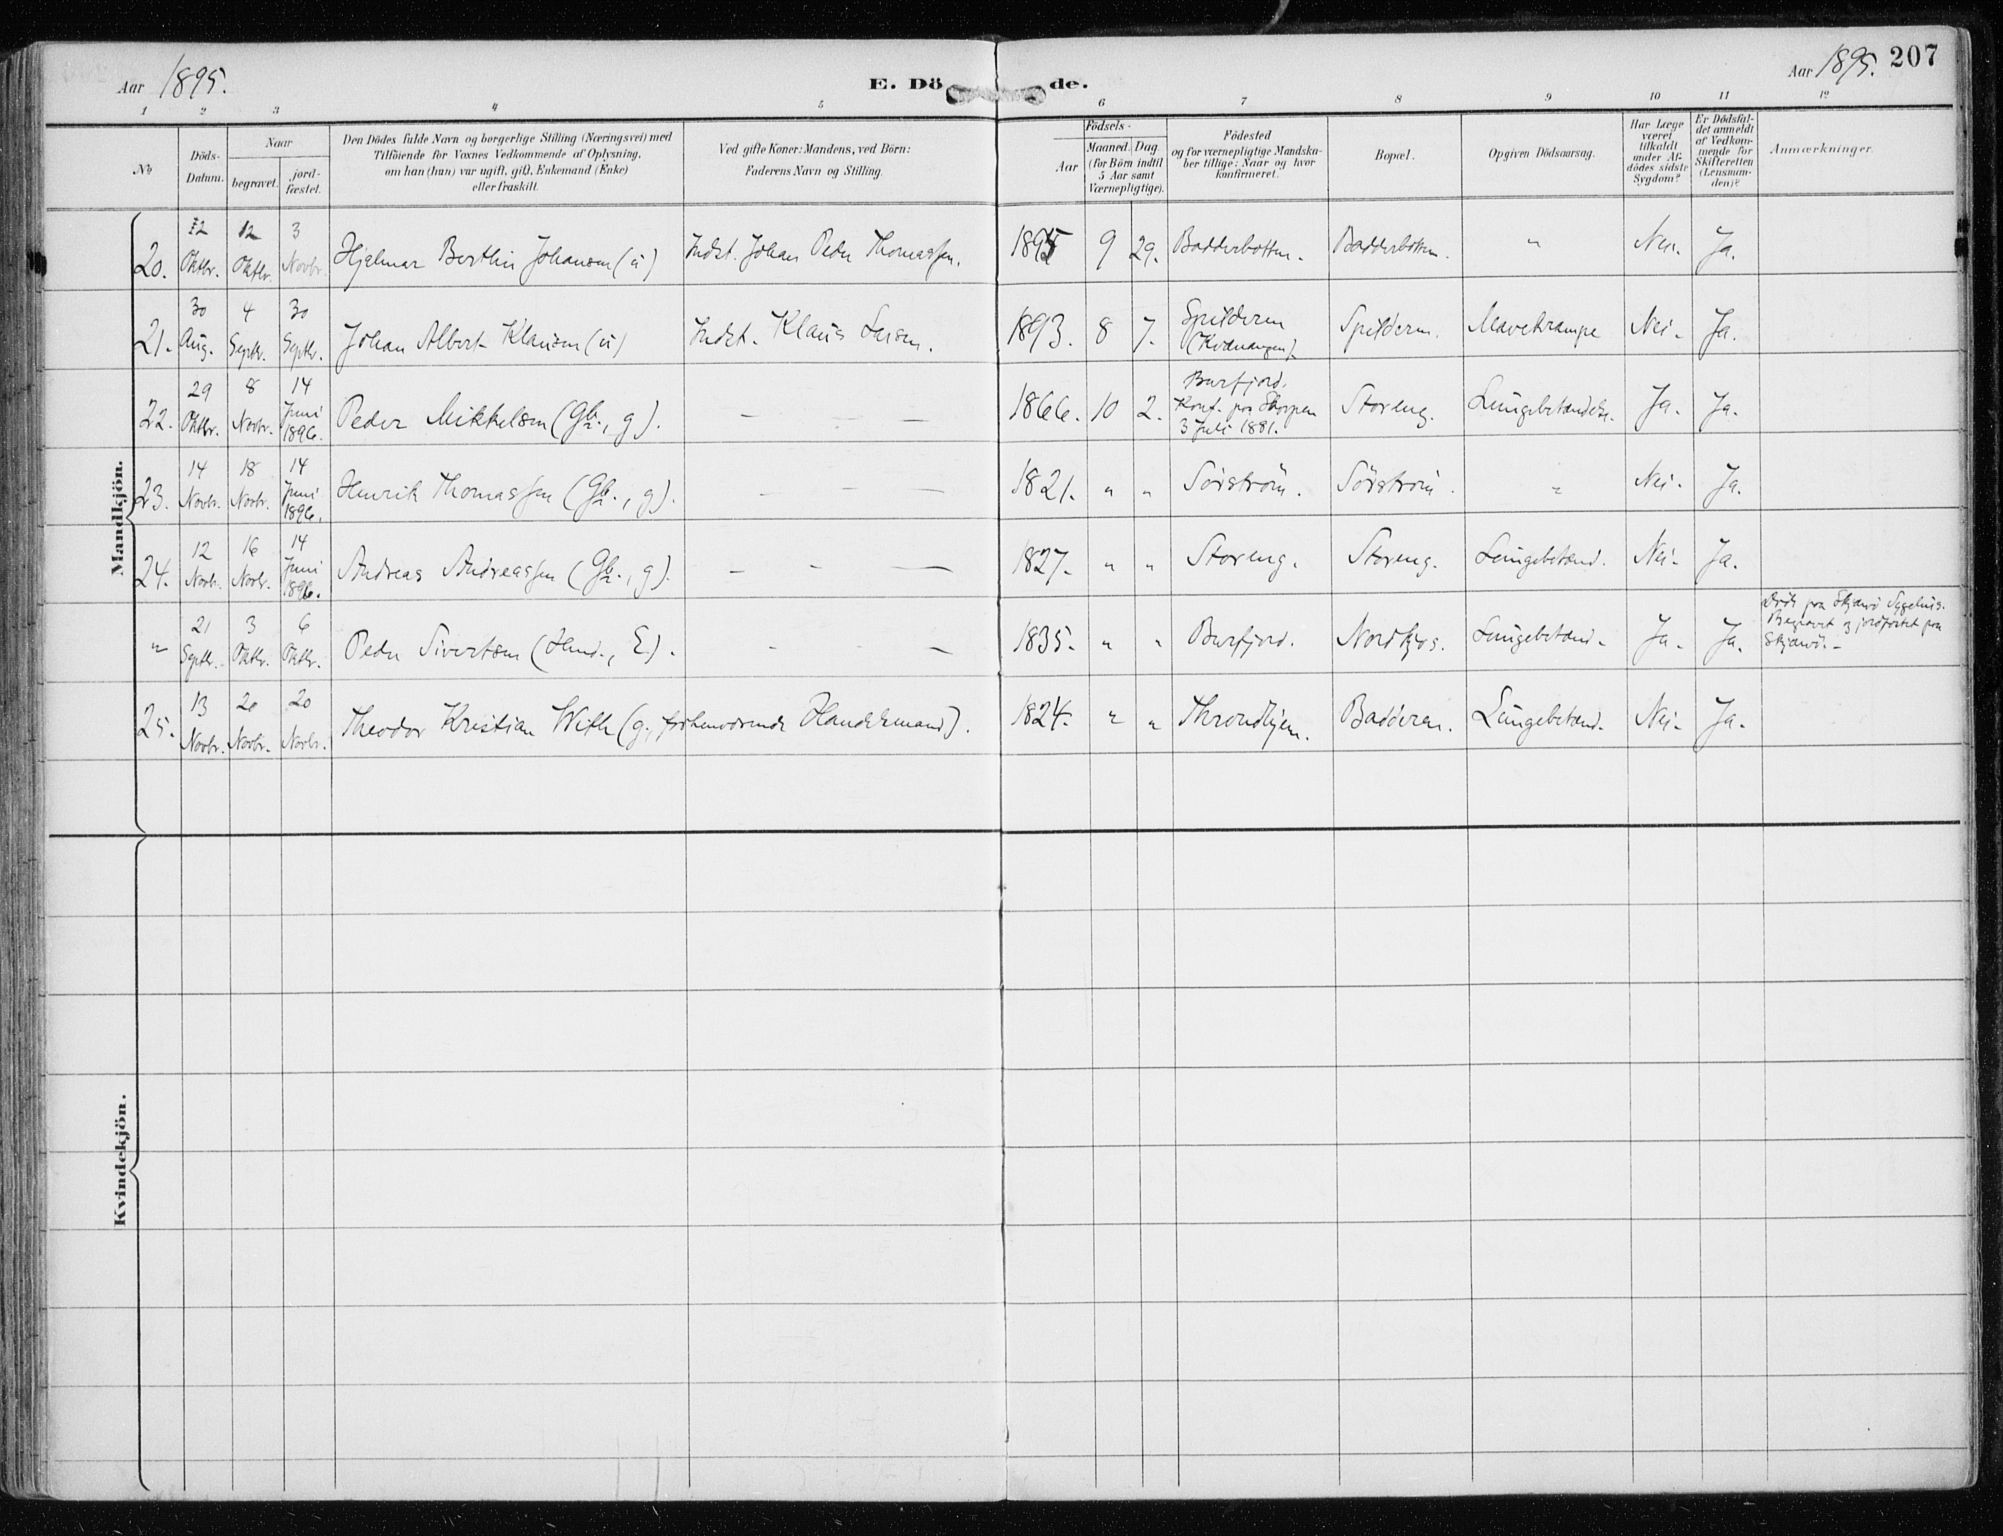 Aar 1895.
E. Dö de.
Aar 1895. 207
1 2 3 4 5 6 7 8 9 10 11 12
No
Döds-
Datum.
Naar
begravet.
jord-
fæstet.
Den Dödes fulde Navn og borgerlige Stilling (Næringsvei) med
Tilföiende for Voxnes Vedkommende af Oplysning,
om han (hun) var ugift, gift, Enkemand (Enke)
eller fraskilt.
Ved gifte Koner: Mandens, ved Börn:
Faderens Navn og Stilling.
Födsels-
Aar
Maaned. Dag.
(for Börn indtil
5 Aar samt
Værnepligtige).
Födested
og for værnepligtige Mandska-
ber tillige: Naar og hvor
konfirmeret.
Bopæl.
Opgiven Dödsaarsag.
Har Læge
været
tilkaldt
under Af-
dödes sidste
Sygdom?
Er Dödsfal-
det anmeldt
af Vedkom-
mende for
Skifteretten
(Lensman-
den)?
Anmærkninger.
Mandkjön.
20. 12 Oktbr. 12 Oktbr. 3 Novbr. Hjalmar Berthin Johansen (u) Indst. Johan Peder Thomassen. 1895 9 29. Badderbotten. Badderbotten. " Nei. Ja.
21. 30 Aug. 4 Septbr. 30 Septbr. Johan Albert Klausen (u) Indst. Klaus Larsen. 1893. 8 7. Spilderen (Kvænangen). Spilderen. Mavekrampe Nei. Ja.
22. 29 Oktbr. 8 Novbr. 14 Juni 1896. Peder Mikkelsen (Gbr., g). — — 1866. 10 2. Burfjord. Konf. paa Skorpen 3 Juli 1881. Storeng. Lungebetændelse. Ja. Ja.
23. 14 Novbr. 18 Novbr. 14 Juni 1896. Henrik Thomassen (Gbr., g). — — — 1821. " " Sörström. Sörström. " Nei. Ja.
24. 12 Novbr. 16 Novbr. 14 Juni 1896. Andreas Andreassen (Gbr., g). — — — 1827. " " Storeng. Storeng. Lungebetænd. Nei. Ja.
" 21 Septbr. 3 Oktbr. 6 Oktbr. Peder Sivertsen (Hand., E). — — — 1835. " " Burfjord. Nordkjos. Lungebetænd. Ja. Ja. Döde paa Skjærvö Sygehus. Begravet og jordfæstet paa Skjærvö. —
25. 13 Novbr. 20 Novbr. 20 Novbr. Theodor Kristian With (g., forhenværende Handelsmand). 1824. " " Throndhjem. Badderen. Lungebetænd. Nei. Ja.
Kvindekjön.